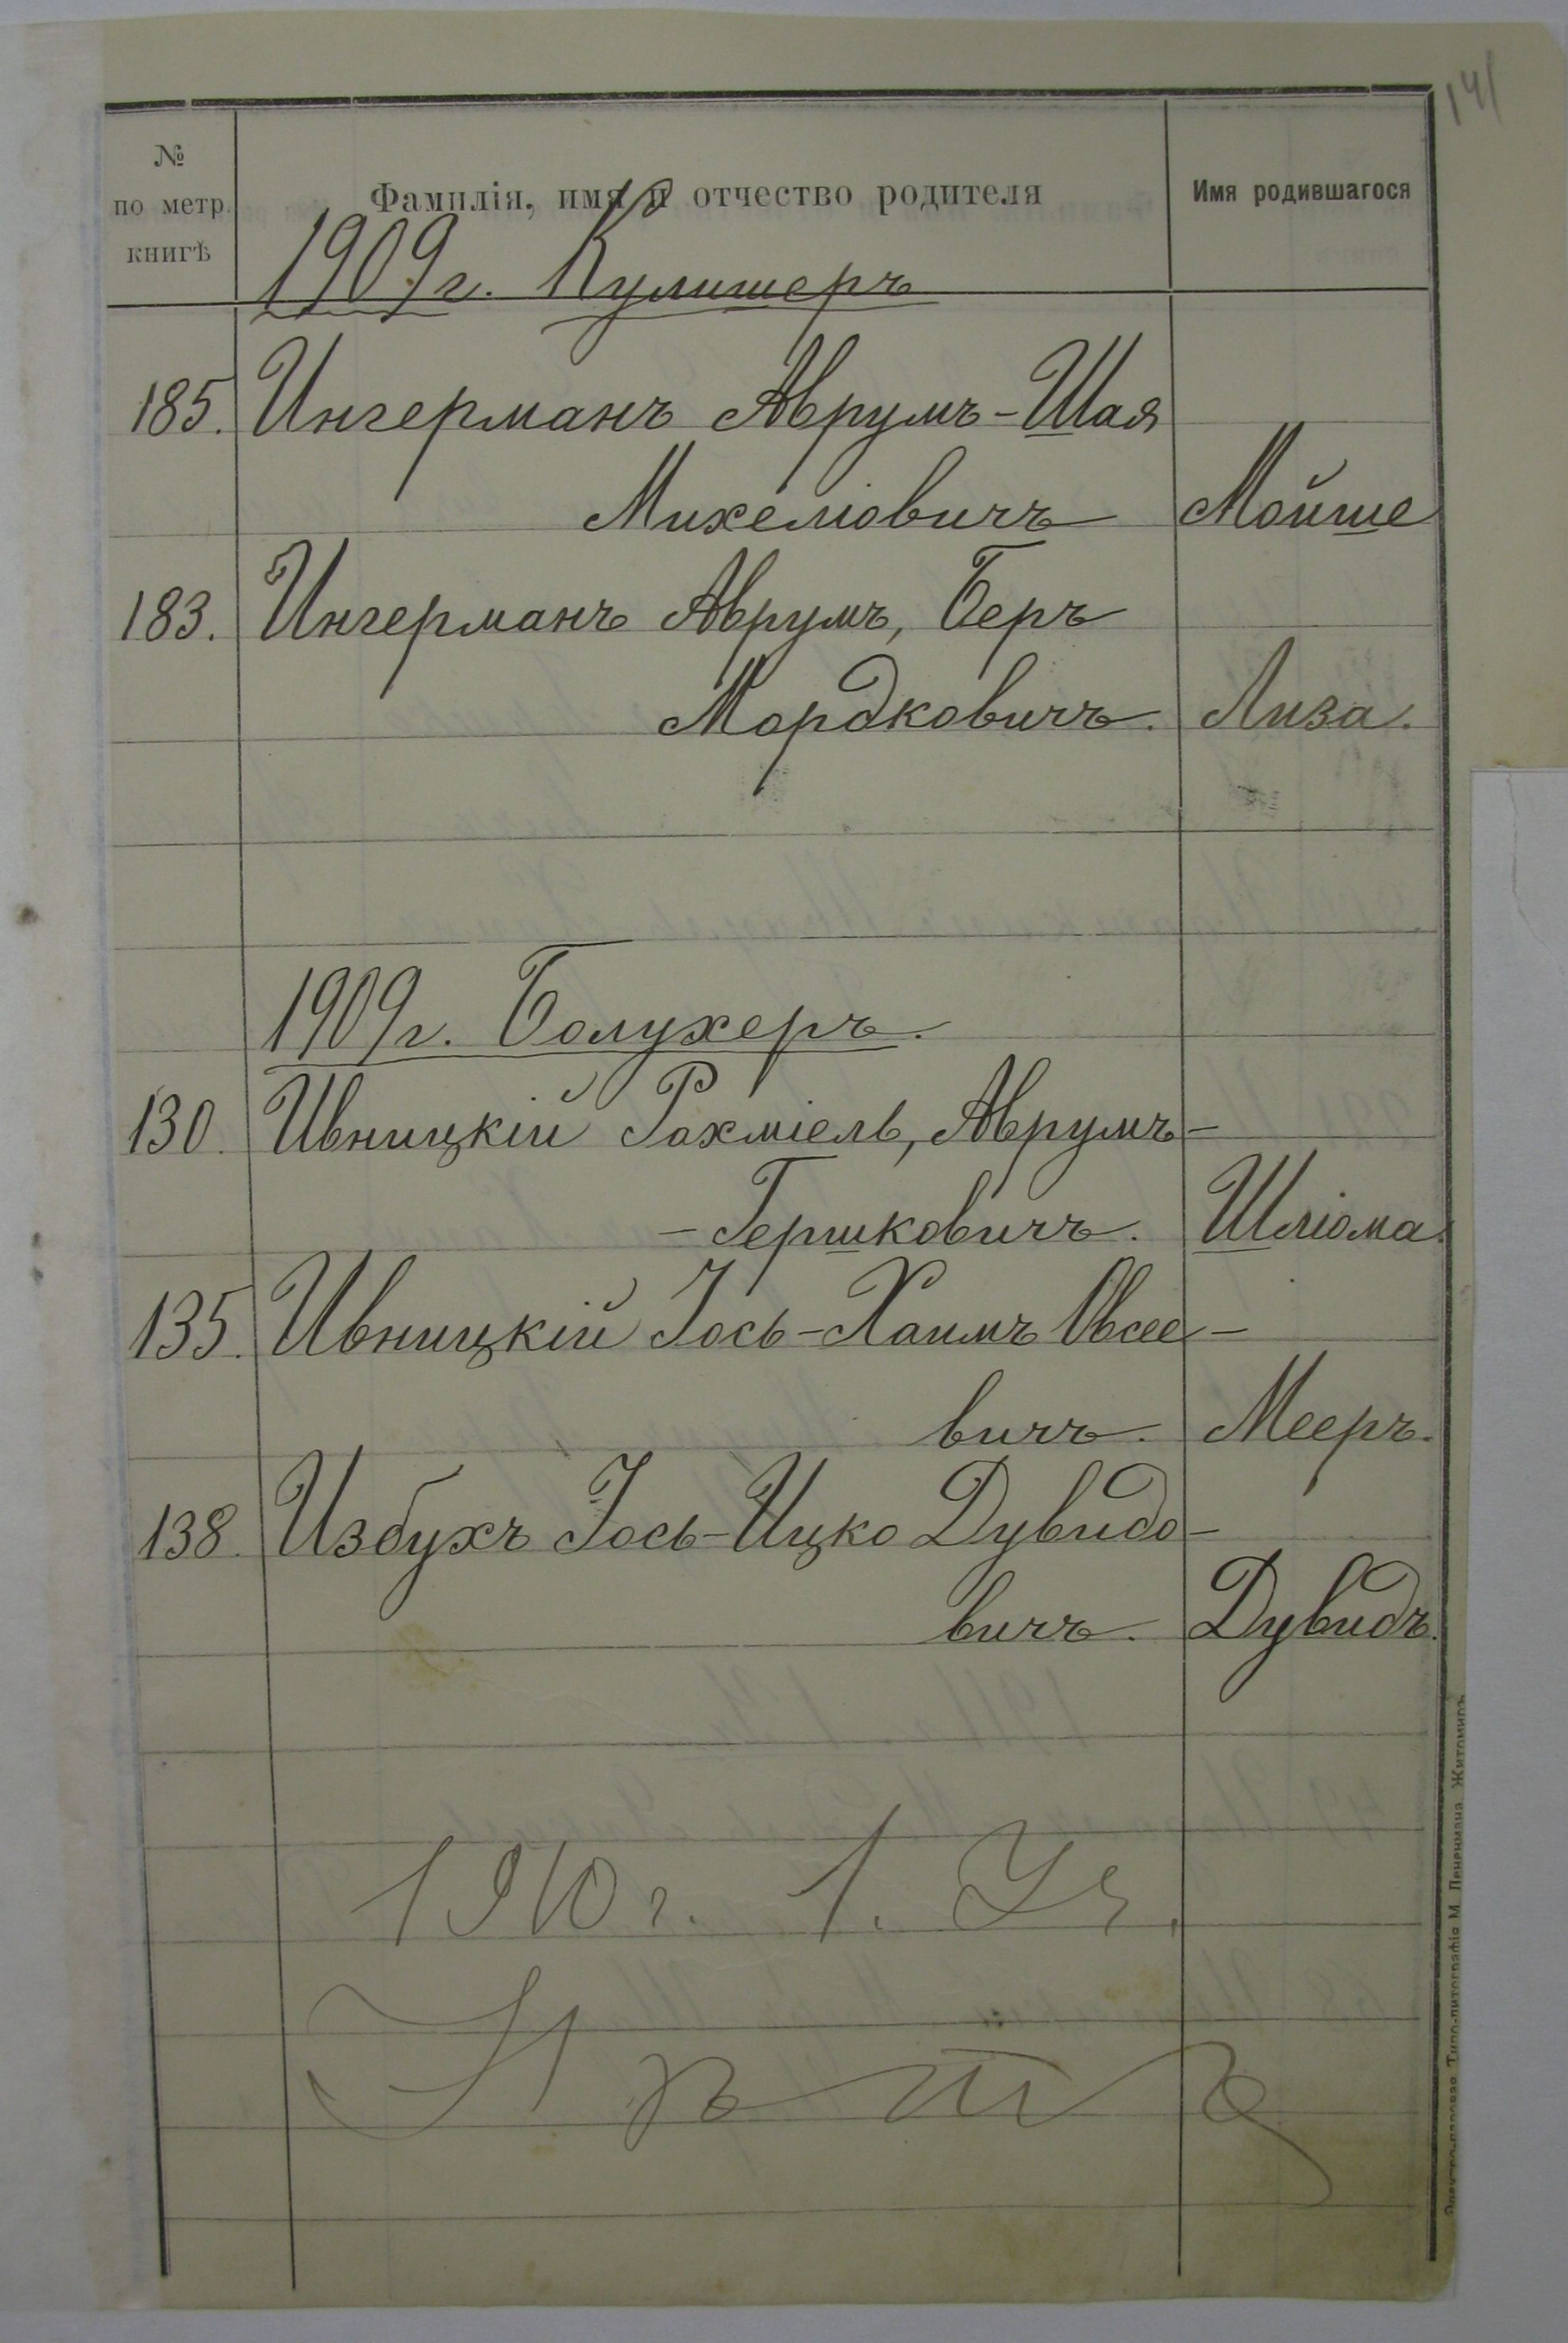 141
№ по метр. книгѣ
Фамилія, имя и отчество родителя
Имя родившагося
1909 г. Кулишеръ
185. Ингерманъ Аврумъ-Шая
Михеліовичъ Мойше
183. Ингерманъ Аврумъ, Беръ
Мордковичъ. Лиза.
1909 г. Болухеръ.
130. Ивницкій Рахміель, Аврумъ-
-Гершковичъ. Шліома.
135. Ивницкій Іось-Хаимъ Овсее-
вичъ. Мееръ.
138. Избухъ Іось-Ицко Дувидо-
вичъ. Дувидъ.
1910 г. 1. Уч.
Нѣтъ
Электро-паровая Типо-литографія М. Дененмана. Житомиръ